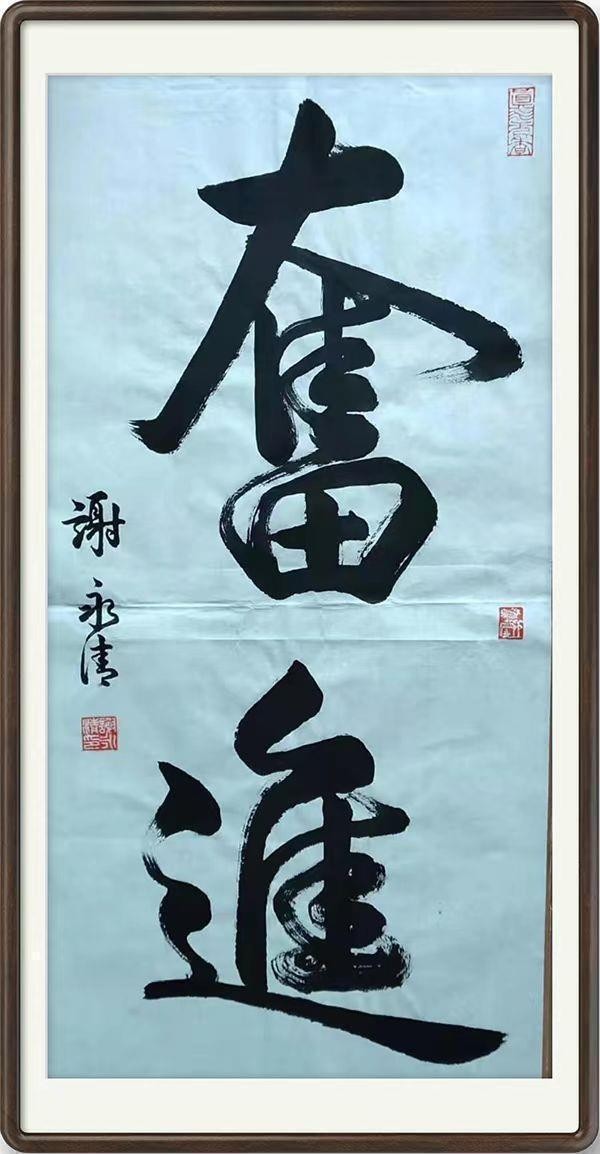 奮進
謝永清